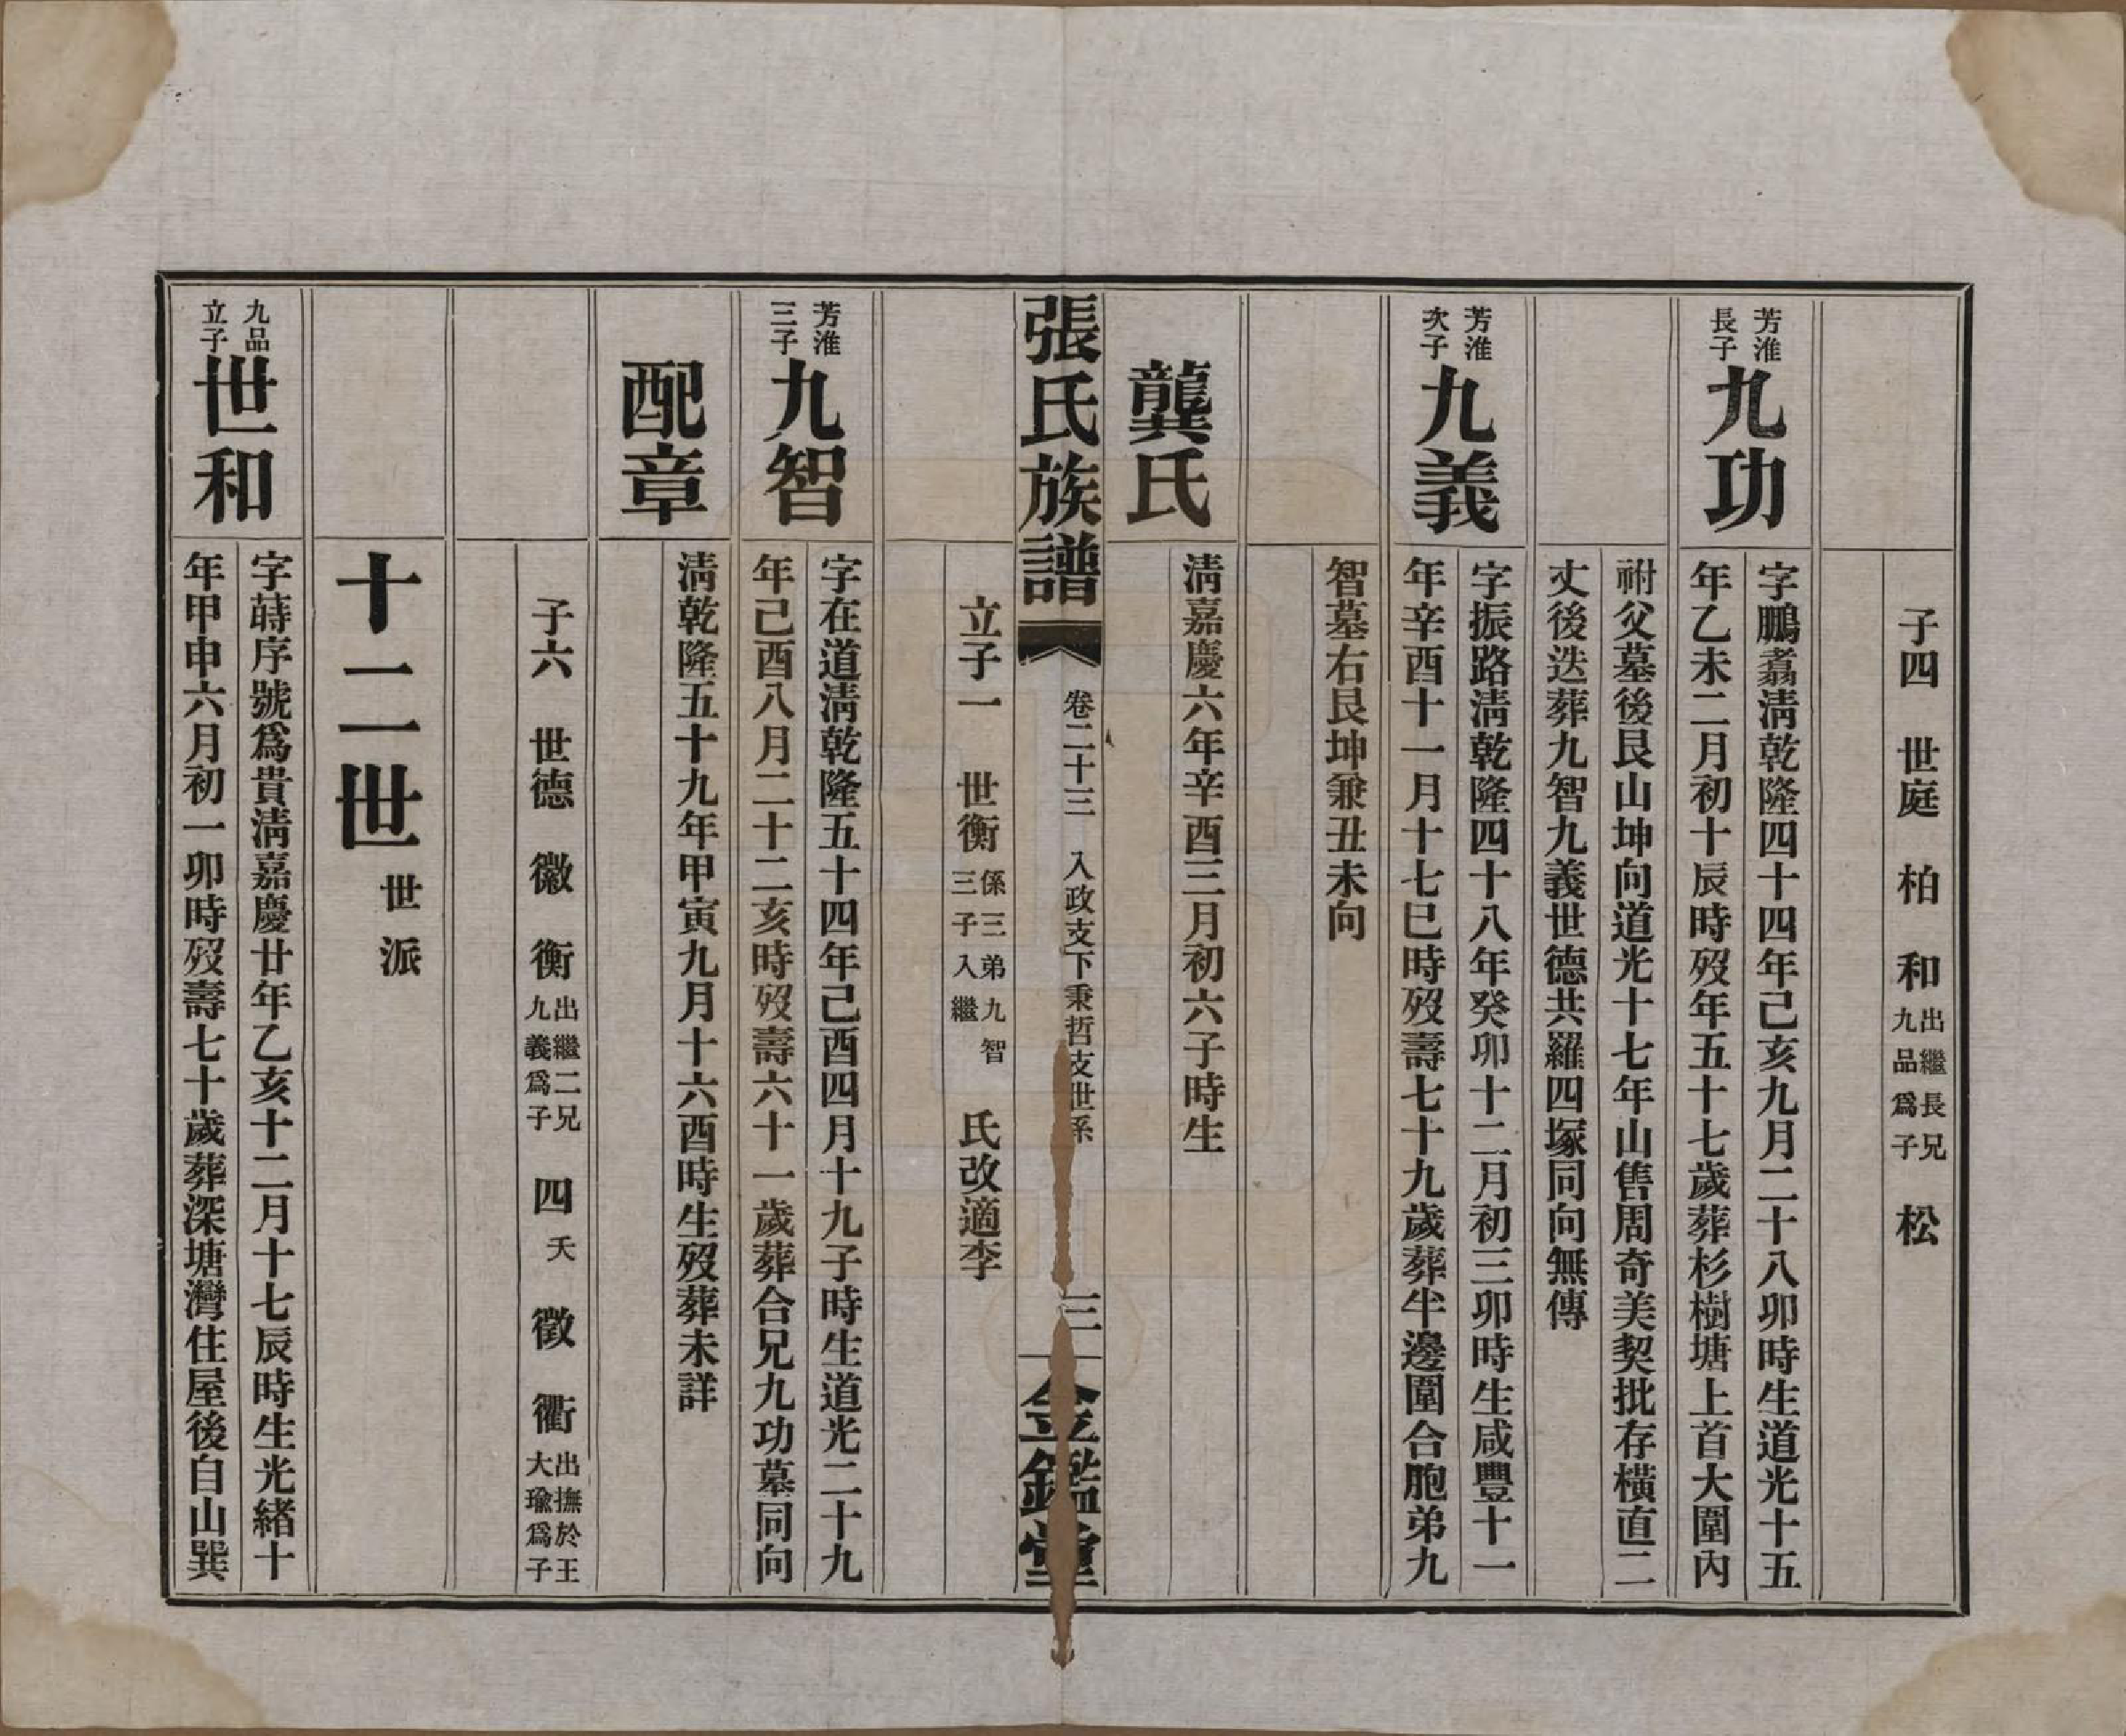 子四　世庭　柏　和出繼長兄九品爲子　松
芳淮長子
九功
字鵬翥淸乾隆四十四年己亥九月二十八卯時生道光十五
年乙未二月初十辰時歿年五十七歲葬杉樹塘上首大圍內
祔父墓後艮山坤向道光十七年山售周奇美契批存橫直二
丈後迭葬九智九義世德共羅四塚同向無傳
芳淮次子
九義
字振路淸乾隆四十八年癸卯十二月初三卯時生咸豐十一
年辛酉十一月十七巳時歿壽七十九歲葬半邊圍合胞弟九
智墓右艮坤兼丑未向
龔氏
淸嘉慶六年辛酉三月初六子時生
張氏族譜
卷二十三　入政支下秉哲支世系
三
金鑑堂
立子一　世衡係三弟九智三子入繼　氏改適李
芳淮三子
九智
字在道淸乾隆五十四年己酉四月十九子時生道光二十九
年己酉八月二十二亥時歿壽六十一歲葬合兄九功墓同向
配章
淸乾隆五十九年甲寅九月十六酉時生歿葬未詳
子六　世德　徽　衡出繼二兄九義爲子　四夭　徵　衢出撫於王大瑜爲子
十二世世派
九品立子
世和
字蒔序號爲貴淸嘉慶廿年乙亥十二月十七辰時生光緒十
年甲申六月初一卯時歿壽七十歲葬深塘灣住屋後自山巽